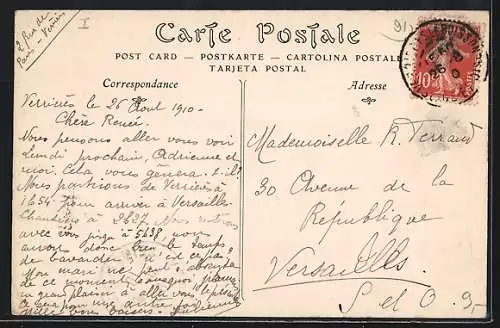 2 Rue de
Paris - Verrières
91
Carte Postale
POST CARD — POSTKARTE — CARTOLINA POSTALE
TARJETA POSTAL
Correspondance
Adresse
10
Verrières le 26 Aout 1910 -
Chère Renée.
Nous pensons aller vous voir
Lundi prochain, Adrienne et
moi. Cela vous gènera-t-il?
Nous partirons de Verrières à
1h54 pour arriver à Versailles-
Chantiers à 2h27. Nous
avec vous 5h38, nous
aurons donc bien le temps
de bavarder, n'
Mon mari ne peut s'absenter
de ce moment
un grand plaisir à aller vous
Ce sera pour une autre
vous baise.
Mademoiselle R. Terrand
30 Avenue de la
République
Versailles
S et O. 9-